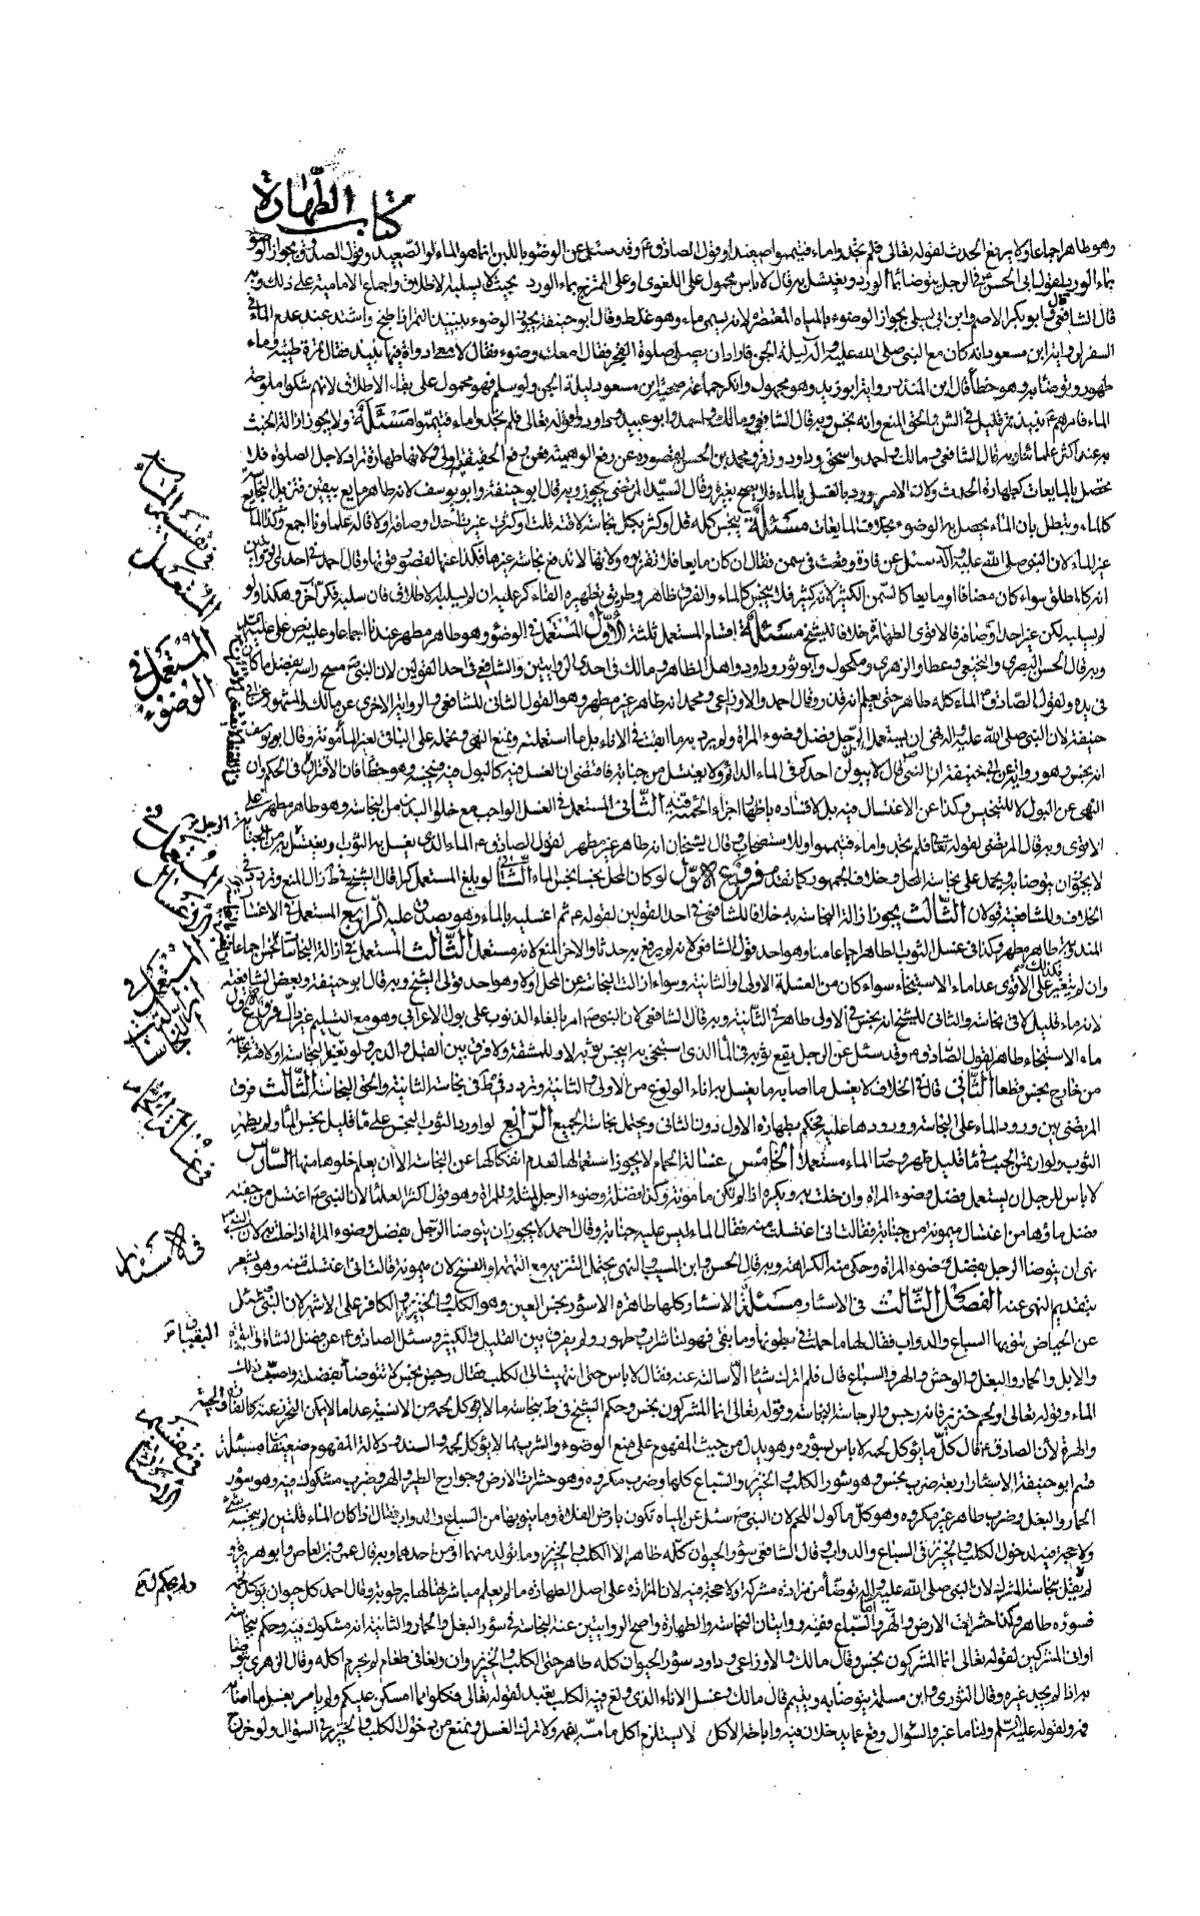 كتاب الطهارة
وهو طاهر اجماعا ولا يرفع الحدث لقوله تعالى فلم تجدوا ماء فتيمموا صعيدا وقول الصادق ع وقد سئل عن الوضوء باللبن انما هو الماء او الصعيد وقول الصدوق بجواز الوضوء
بماء الورد لقول ابي الحسن ع في الرجل يتوضأ بماء الورد ويغتسل به قال لا باس محمول على اللغوي او على الممتزج بماء الورد بحيث لا يسلبه الاطلاق واجماع الامامية على ذلك وبه
قال الشافعي وابو بكر الاصم وابن ابي ليلى بجواز الوضوء بالمياه المعتصرة لانه يسمى ماء وهو غلط وقال ابو حنيفة يجوز الوضوء بنبيذ التمر اذا طبخ واشتد عند عدم الماء في
السفر لرواية ابن مسعود انه كان مع النبي صلى الله عليه وآله ليلة الجن فاراد ان يصلي صلوة الفجر فقال امعك وضوء فقال لا معي اداوة فيها نبيذ فقال تمرة طيبة وماء
طهور وتوضأ به وهو خطأ قال ابن المنذر رواية ابو زيد وهو مجهول وانكر جماعة صحبة ابن مسعود ليلة الجن ولو سلم فهو محمول على بقاء الاطلاق لانهم شكوا ملوحة
الماء فامرهم ع بنبذ تمر قليل في الشن والحق المنع وانه نجس وبه قال الشافعي ومالك واحمد وابو عبيد وداود لقوله تعالى فلم تجدوا ماء فتيمموا مسئلة ولا يجوز ازالة الخبث
به عند اكثر علمائنا وبه قال الشافعي ومالك واحمد واسحق وداود وزفر ومحمد بن الحسن لقصوره عن رفع الوهمية فعن رفع الحقيقية اولى ولانها طهارة تراد لاجل الصلوة فلا
تحصل بالمايعات كطهارة الحدث ولان الامر ورد بالغسل بالماء فلا يصح بغيره وقال السيد المرتضى يجوز وبه قال ابو حنيفة وابو يوسف لانه طاهر مايع بيقين فتزيل النجاسة
كالماء ويبطل بان الماء يحصل به الوضوء بخلاف المايعات مسئلة ينجس كله قل او كثر بكل نجاسة لاقته قلت او كثرت غيرت احد اوصافه او لا قاله علماؤنا اجمع وكذا المايع
غير الماء لان النبي صلى الله عليه وآله سئل عن فارة وقعت في سمن فقال ان كان مايعا فلا تقربوه ولانها لا تدفع نجاسة غيرها فكذا عنها لقصور قوتها وقال احمد في احدى الروايتين
انه كالمطلق سواء كان مضافا او مايعا كالسمن الكثير لانه كثير فلا ينجس كالماء والفرق ظاهر وطريق تطهيره القاء كر عليه ان لم يسلبه الاطلاق فان سلبه فكر آخر وهكذا ولو
لم يسلبه لكن غير احد اوصافه فالاقوى الطهارة خلافا للشيخ مسئلة اقسام المستعمل ثلثة الاول المستعمل في الوضوء وهو طاهر مطهر عندنا اجماعا وعليه نص علي عليه السلم
وبه قال الحسن البصري والنخعي وعطا والزهري ومكحول وابو ثور وداود واهل الظاهر ومالك في احدى الروايتين والشافعي في احد القولين لان النبي ص مسح راسه بفضل ما كان
في يده ولقول الصادق ع الماء كله طاهر حتى يعلم انه قذر وقال احمد والاوزاعي ومحمد انه طاهر غير مطهر وهو القول الثاني للشافعي والرواية الاخرى عن مالك والمشهور عن ابي
حنيفة لان النبي صلى الله عليه وآله نهى ان يستعمل الرجل فضل وضوء المراة ولم يرد به ما ابقت في الاناء بل ما استعملته ونمنع النهي ونحمله على الباقي لغير المأمونة وقال ابو يوسف
انه نجس وهو رواية عن ابي حنيفة لان النبي ص قال لا يبولن احدكم في الماء الدائم ولا يغتسل من جنابة فاقتضى ان الغسل فيه كالبول فيه فينجسه وهو خطأ فان الاقتران في الحكم وان
النهي عن البول لا للتنجيس وكذا عن الاغتسال فيه بل لافساده باظهار اجزاء الحمأة فيه الثاني المستعمل في الغسل الواجب مع خلو البدن من النجاسة وهو طاهر مطهر على
الاقوى وبه قال المرتضى لقوله تعالى فلم تجدوا ماء فتيمموا وللاستصحاب وقال الشيخان انه طاهر غير مطهر لقول الصادق ع الماء الذي يغسل به الثوب ويغتسل به من الجنابة
لا يجوز ان يتوضأ به ويحمل على نجاسة المحل وخلاف الجمهور كما تقدم فروع الاول لو كان المحل نجسا نجس الماء الثاني لو بلغ المستعمل كرا قال الشيخ في ط زال المنع وتردد في
الخلاف وللشافعية قولان الثالث يجوز ازالة النجاسة به خلافا للشافعي في احد القولين لقوله ع ثم اغسليه بالماء وهو يصدق عليه الرابع المستعمل في الاغسال
المندوبة طاهر مطهر وكذا في غسل الثوب الطاهر اجماعا منا وهو احد قولي الشافعي لانه لم يرفع به حدثا والآخر المنع لانه مستعمل الثالث المستعمل في ازالة النجاسات نجس اجماعا
وان لم يتغير على الاقوى عدا ماء الاستنجاء سواء كان من الغسلة الاولى والثانية وسواء ازالت النجاسة عن المحل او لا وهو احد قولي الشيخ وبه قال ابو حنيفة وبعض الشافعية
لانه ماء قليل لاقى نجاسة والثاني للشيخ انه نجس في الاولى طاهر في الثانية وبه قال الشافعي لان النبي ص امر بالقاء الذنوب على بول الاعرابي وهو مع التسليم غير دال فروع الاول
ماء الاستنجاء طاهر لقول الصادق ع وقد سئل عن الرجل يقع ثوبه في الماء الذي استنجى به اينجس ثوبه لا وللمشقة ولا فرق بين القبل والدبر ولو تغير بالنجاسة او لاقته نجاسة
من خارج نجس قطعا الثاني قال في الخلاف لا يغسل ما اصابه ما يغسل به اناء الولوغ من الاولى والثانية وتردد في ط في نجاسة الثانية والحق النجاسة الثالث فرق
المرتضى بين ورود الماء على النجاسة وورودها عليه فحكم بطهارة الاول دون الثاني ويحتمل نجاسة الجميع الرابع لو اورد الثوب النجس على ماء قليل نجس الماء ولم يطهر
الثوب ولو ارتمس الجنب في ماء قليل طهر وصار الماء مستعملا الخامس غسالة الحمام لا يجوز استعمالها لعدم انفكاكها عن النجاسة الا ان يعلم خلوها منها السادس
لا باس للرجل ان يستعمل فضل وضوء المراة وان خلت به ويكره اذا لم تكن مامونة وكذا فضلة وضوء الرجل لمثله وللمراة وهو قول اكثر العلماء لان النبي ص اغتسل من جفنة
فضل ماؤها من اغتسال ميمونة من جنابة فقالت اني اغتسلت منه فقال الماء ليس عليه جنابة وقال احمد لا يجوز ان يتوضا الرجل بفضل وضوء المراة اذا خلت به لان النبي ص
نهى ان يتوضا الرجل بفضل وضوء المراة وحكي منه الكراهة وبه قال الحسن وابن المسيب والنهي يحتمل التنزيه مع التهمة او النسخ لان ميمونة قالت اني اغتسلت منه وهو يشعر
بتقديم النهي عنه الفصل الثالث في الاسئار مسئلة الاسئار كلها طاهرة الا سؤر نجس العين وهو الكلب والخنزير والكافر على الاشهر لان النبي ص سئل
عن الحياض تنوبها السباع والدواب فقال لها ما حملت في بطونها وما بقي فهو لنا شراب وطهور ولم يفرق بين القليل والكثير وسئل الصادق ع عن فضل الشاة والبقرة
والابل والحمار والبغل والوحش والهر والسباع قال فلم اترك شيئا الا سالته عنه فقال لا باس حتى انتهيت الى الكلب فقال رجس نجس لا تتوضأ بفضله واصبب ذلك
الماء وقوله تعالى او لحم خنزير فانه رجس والرجاسة النجاسة وقوله تعالى انما المشركون نجس وحكم الشيخ في ط بنجاسة ما لا يؤكل لحمه من الانسية عدا ما لا يمكن التحرز عنه كالفارة والحية
والهرة لأن الصادق ع قال كل ما يؤكل لحمه لا باس بسؤره وهو يدل من حيث المفهوم على منع الوضوء والشرب مما لا يؤكل لحمه والسند ودلالة المفهوم ضعيفان مسئلة
قسم ابو حنيفة الاسئار اربعة ضرب نجس وهو سؤر الكلب والخنزير والسباع كلها وضرب مكروه وهو حشرات الارض وجوارح الطير والهر وضرب مشكوك فيه وهو سؤر
الحمار والبغل وضرب طاهر غير مكروه وهو كل ماكول اللحم لان النبي ص سئل عن المياه تكون بارض الفلاة وما ينوبها من السباع والدواب فقال اذا كان الماء قلتين لم ينجسه شيء
ولا حجة فيه لدخول الكلب والخنزير في السباع والدواب وقال الشافعي سؤر الحيوان كله طاهر الا الكلب والخنزير وما تولد منهما او من احدهما وبه قال عمرو بن العاص وابو هريرة
لم يقل بنجاسة المشرك لان النبي صلى الله عليه وآله توضأ من مزادة مشركة ولا حجة فيه لان المزادة على اصل الطهارة ما لم يعلم مباشرتها لها برطوبة وقال احمد كل حيوان يؤكل لحمه
فسؤره طاهر وكذا حشرات الارض والهر واما السباع ففيه روايتان النجاسة والطهارة واصح الروايتين عنه النجاسة في سؤر البغل والحمار والثانية انه مشكوك فيه وحكم بنجاسة
اواني المشركين لقوله تعالى انما المشركون نجس وقال مالك والاوزاعي وداود سؤر الحيوان كله طاهر حتى الكلب والخنزير وان ولغا في طعام لم يحرم اكله وقال الزهري يتوضأ
به اذا لم يجد غيره وقال الثوري وابن مسلمة يتوضا به ويتيمم قال مالك ويغسل الاناء الذي ولغ فيه الكلب تعبدا لقوله تعالى فكلوا مما امسكن عليكم ولم يامر بغسل ما اصابه
فمه ولقوله عليه السلم ولنا ما غبر والسؤال وقع عما يدخلان فيه واباحة الاكل لا يستلزم اكل ما مسه بفمه ولا ترك الغسل ونمنع من دخول الكلب والخنزير في السؤال ولو خرج
المستعمل في الوضوء
في غسالة الحمام
في الاسئار